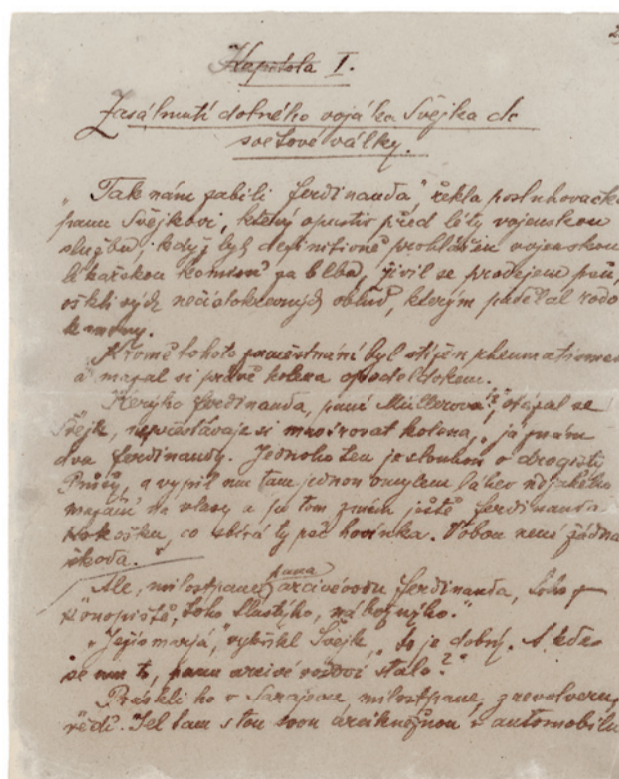 Kapitola I.
Zasáhnutí dobrého vojáka Švejka do
světové války.
„Tak nám zabili Ferdinanda“, řekla posluhovačka
panu Švejkovi, který opustiv před léty vojenskou
službu, když byl definitivně prohlášen vojenskou
lékařskou komisí za blba, živil se prodejem psů,
ošklivých nečistokrevných oblud, kterým padělal rodo
kmeny.
Kromě tohoto zaměstnání byl stižen rheumatismem
a mazal si právě kolena opodeldokem.
„Kerýho Ferdinanda, paní Müllerová?“, otázal se
Švejk, nepřestávaje si masírovat kolena, „já znám
dva Ferdinandy. Jednoho ten je sluhou u drogisty
Průšy, a vypil mu tam jednou omylem láhev nějakého
mazání na vlasy a pak znám ještě Ferdinanda
Kokošku, co sbírá ty psí hovínka. Vobou není žádná
škoda.“
„Ale, milostpane, pana arcivévodu Ferdinanda, toho z
Konopiště, toho tlustýho, nábožnýho.“
„Ježíšmarjá,“ vykřikl Švejk, „to je dobrý. A kde
se mu to, panu arcivévodovi stalo?“
Práskli ho v Sarajevu, milostpane, z revolveru,
vědí. Jel tam s tou svou arcikněžnou v automobilu